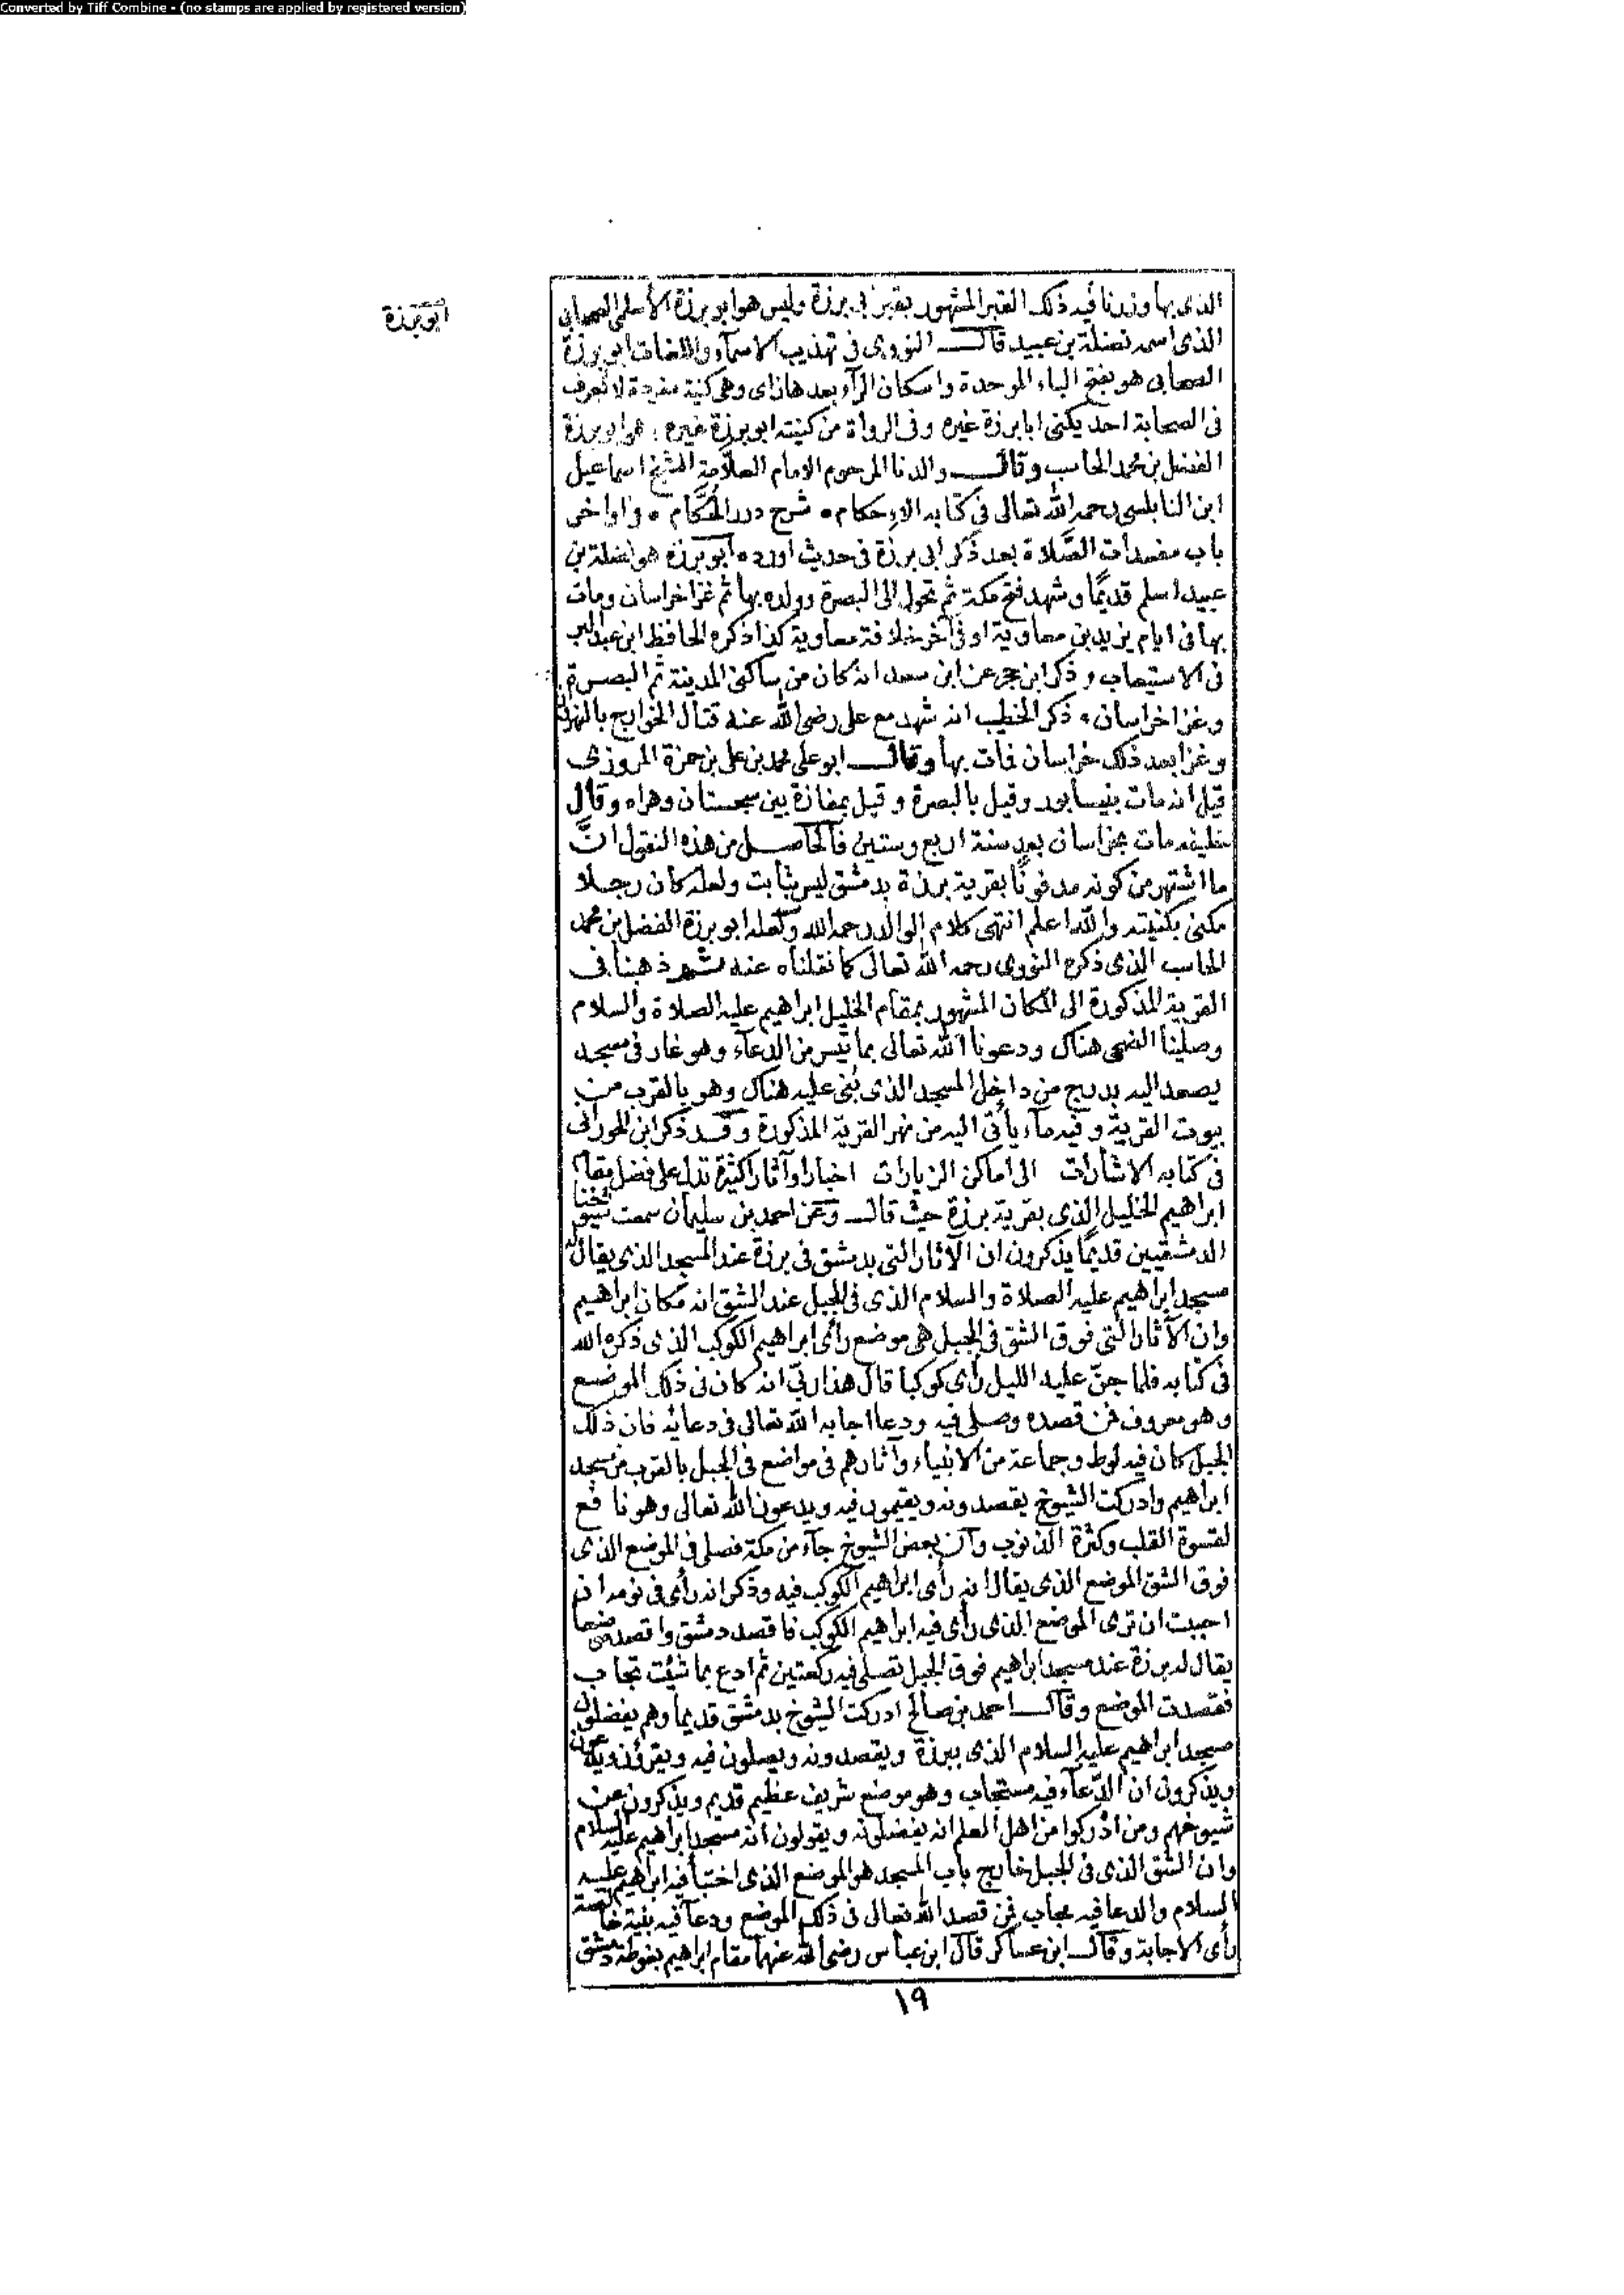 Converted by Tiff Combine - (no stamps are applied by registered version)
ابوبرزة
الذى بها وزرنا فيه ذلك القبر المشهور بقبر ابى برزة وليس هو ابو برزة الأسلمى الصحابى
الذى اسمه نضلة بن عبيد قال النووى فى تهذيب الاسمآء واللغات ابو برزة
الصحابى هو بفتح الباء الموحدة واسكان الرآء بعدها زاى وهى كنية مفردة لا تعرف
فى الصحابة احد يكنى ابا برزة غيره وفى الرواة من كنيته ابو برزة غيره هو ابو برزة
الفضل بن محمد الحاسب وقال والدنا المرحوم الامام العلامة الشيخ اسماعيل
ابن النابلسى رحمه الله تعالى فى كتابه الاحكام شرح درر الحُكَّام واواخر
باب مفسدات الصَّلاة بعد ذكر ابى برزة فى حديث اورده ابو برزة هو نضلة بن
عبيد اسلم قديمًا وشهد فتح مكة ثم تحول الى البصرة وولده بها ثم غزا خراسان ومات
بها فى ايام يزيد بن معاوية او فى آخر خلافة معاوية كذا ذكره الحافظ ابن عبد البر
فى الاستيعاب وذكر ابن حجر عن ابن سعد انه كان من ساكنى المدينة ثم البصرة
وغزا خراسان وذكر الخطيب انه شهد مع على رضى الله عنه قتال الخوارج بالنهروان
وغزا بعد ذلك خراسان فمات بها وقال ابو على محمد بن على بن حمزة المروزى
قيل انه مات بنيسابور وقيل بالبصرة وقيل بمفازة بين سجستان وهراه وقال
خليفه مات بخراسان بعد سنة اربع وستين فالحاصل من هذه النقول انَّ
ما اشتهر من كونه مدفونًا بقرية برزة بدمشق ليس بثابت ولعله كان رجلا
مكنى بكنيته والله اعلم انتهى كلام الوالد رحمه الله ولعله ابو برزة الفضل بن محمد
الحاسب الذى ذكره النووى رحمه الله تعالى كما نقلناه عنه ثم ذهبنا فى
القرية المذكورة الى المكان المشهور بمقام الخليل ابراهيم عليه الصلاة والسلام
وصلينا الضحى هناك ودعونا الله تعالى بما تيسر من الدعآء وهو غار فى مسجد
يصعد اليه بدرج من داخل المسجد الذى بُنى عليه هناك وهو بالقرب من
بيوت القرية وفيه مآء يأتى اليه من نهر القرية المذكورة وقد ذكر ابن الحورانى
فى كتابه الاشارات الى اماكن الزيارات اخبارا وآثارا كثيرة تدل على فضل مقام
ابراهيم الخليل الذى بقرية برزة حيث قال وعن احمد بن سليمان سمعت شيوخنا
الدمشقيين قديمًا يذكرون ان الآثار التى بدمشق فى برزة عند المسجد الذى يقال له
مسجد ابراهيم عليه الصلاة والسلام الذى فى الجبل عند الشق انه مكان ابراهيم
وان الآثار التى فوق الشق فى الجبل هى موضع رأى ابراهيم الكوكب الذى ذكره الله
فى كتابه فلما جنّ عليه الليل رأى كوكبا قال هذا ربّى انه كان فى ذلك الموضع
وهو معروف فمن قصده وصلى فيه ودعا اجابه الله تعالى فى دعائه فان ذلك
الجبل كان فيه لوط وجماعة من الانبياء وآثارهم فى مواضع فى الجبل بالقرب من مسجد
ابراهيم وادركت الشيوخ يقصدونه ويقيمون فيه ويدعون الله تعالى وهو نافع
لقسوة القلب وكثرة الذنوب وانّ بعض الشيوخ جآء من مكة فصلى فى الموضع الذى
فوق الشق الموضع الذى يقال انه رأى ابراهيم الكوكب فيه وذكر انه رأى فى نومه ان
احببت ان ترى الموضع الذى رأى فيه ابراهيم الكوكب فاقصد دمشق واقصد موضعا
يقال له برزة عند مسجد ابراهيم فوق الجبل تصلى فيه ركعتين ثم ادع بما شئت تجاب
فقصدت الموضع وقال احمد بن صالح ادركت الشيوخ بدمشق قديما وهم يفضلون
مسجد ابراهيم عليه السلام الذى ببرزة ويقصدونه ويصلون فيه ويقرؤن ويدعون
ويذكرون ان الدّعآء فيه مستجاب وهو موضع شريف عظيم قديم ويذكرون عن
شيوخهم ومن ادركوا من اهل العلم انه يفضلونه ويقولون انه مسجد ابراهيم عليه السلام
وان الشق الذى فى الجبل خارج باب المسجد هو الموضع الذى اختبأ فيه ابراهيم عليه
السلام والدعا فيه مجاب فمن قصد الله تعالى فى ذلك الموضع ودعا فيه بنية خالصة
رأى الاجابة وقال ابن عساكر قال ابن عباس رضى الله عنهما مقام ابراهيم بغوطة دمشق
١٩